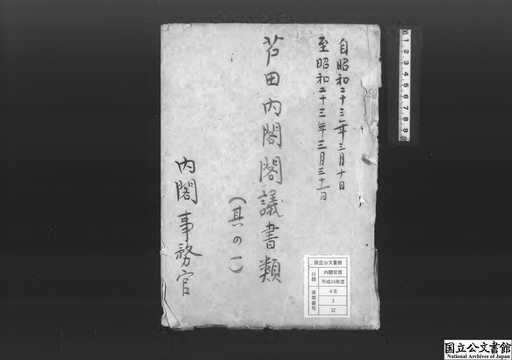 自昭和二十三年三月十日
至昭和二十三年三月三十一日
芦田内閣閣議書類
(其の一)
内閣事務官
国立公文書館
分類
内閣官房
平成14年度
4E
排架番号
3
32
cm 1 2 3 4 5 6 7 8 9
国立公文書館
National Archives of Japan